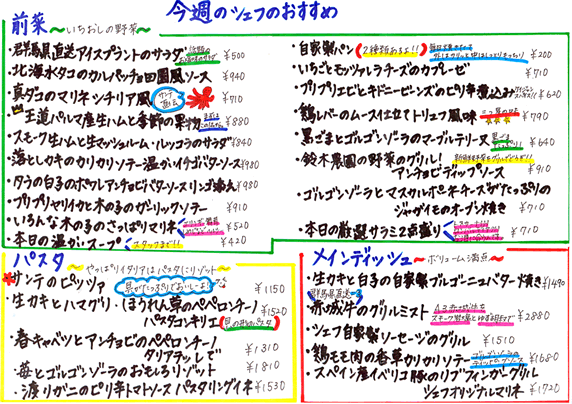 今週のシェフのおすすめ
前菜 〜いちおしの野菜〜
・群馬県直送アイスプラントのサラダ ¥500
・北海水タコのカルパッチョ田園風ソース ¥940
・真ダコのマリネ シチリア風 ¥710
・王道パルマ産生ハムと季節の果物 ¥880
・スモーク生ハムと生マッシュルーム・ルッコラのサラダ ¥840
・落としカキのカリカリソテー温かいイチゴバターソース ¥980
・タラの白子のポワレアンチョビバターソースリンゴ添え ¥980
・プリプリヤリイカと木の子のガーリックソテー ¥910
・いろんな木の子のさっぱりマリネ ¥520
・本日の温かいスープ スタッフまで!! ¥420
・自家製パン (2種類あるよ!!) ¥200
・いちごとモッツァレラチーズのカプレーゼ ¥710
・プリプリエビとキドニービーンズのピリ辛煮込み ¥620
・鶏レバーのムース仕立てトリュフ風味 ¥790
・黒ごまとゴルゴンゾーラのマーブルテリーヌ ¥640
・鈴木農園の野菜のグリル!
アンチョビディップソース ¥910
・ゴルゴンゾーラとマスカルポーネチーズがたっぷりの
ジャガイモのオーブン焼き ¥710
・本日の厳選サラミ2点盛り ¥710
パスタ 〜やっぱりイタリアはパスタにリゾット〜
サンテのピッツァ ¥1150
・生カキとハマグリ・ほうれん草のペペロンチーノ ¥1520
パスタコンキリエ
・春キャベツとアンチョビのペペロンチーノ
タリアテッレで ¥1310
・苺とゴルゴンゾーラのおもしろリゾット ¥1810
・渡りガニのピリ辛トマトソース パスタリングイネ ¥1530
メインディッシュ 〜ボリューム満点〜
・生カキと白子の自家製ブルゴーニュバター焼き ¥1490
群馬県直送
・赤城牛のグリルミスト ¥2880
・シェフ自家製ソーセージのグリル ¥1510
・鶏モモ肉の香草カリカリソテー ¥1680
・スペイン産イベリコ豚のリブフィンガーグリル
シェフオリジナルマリネ ¥1720